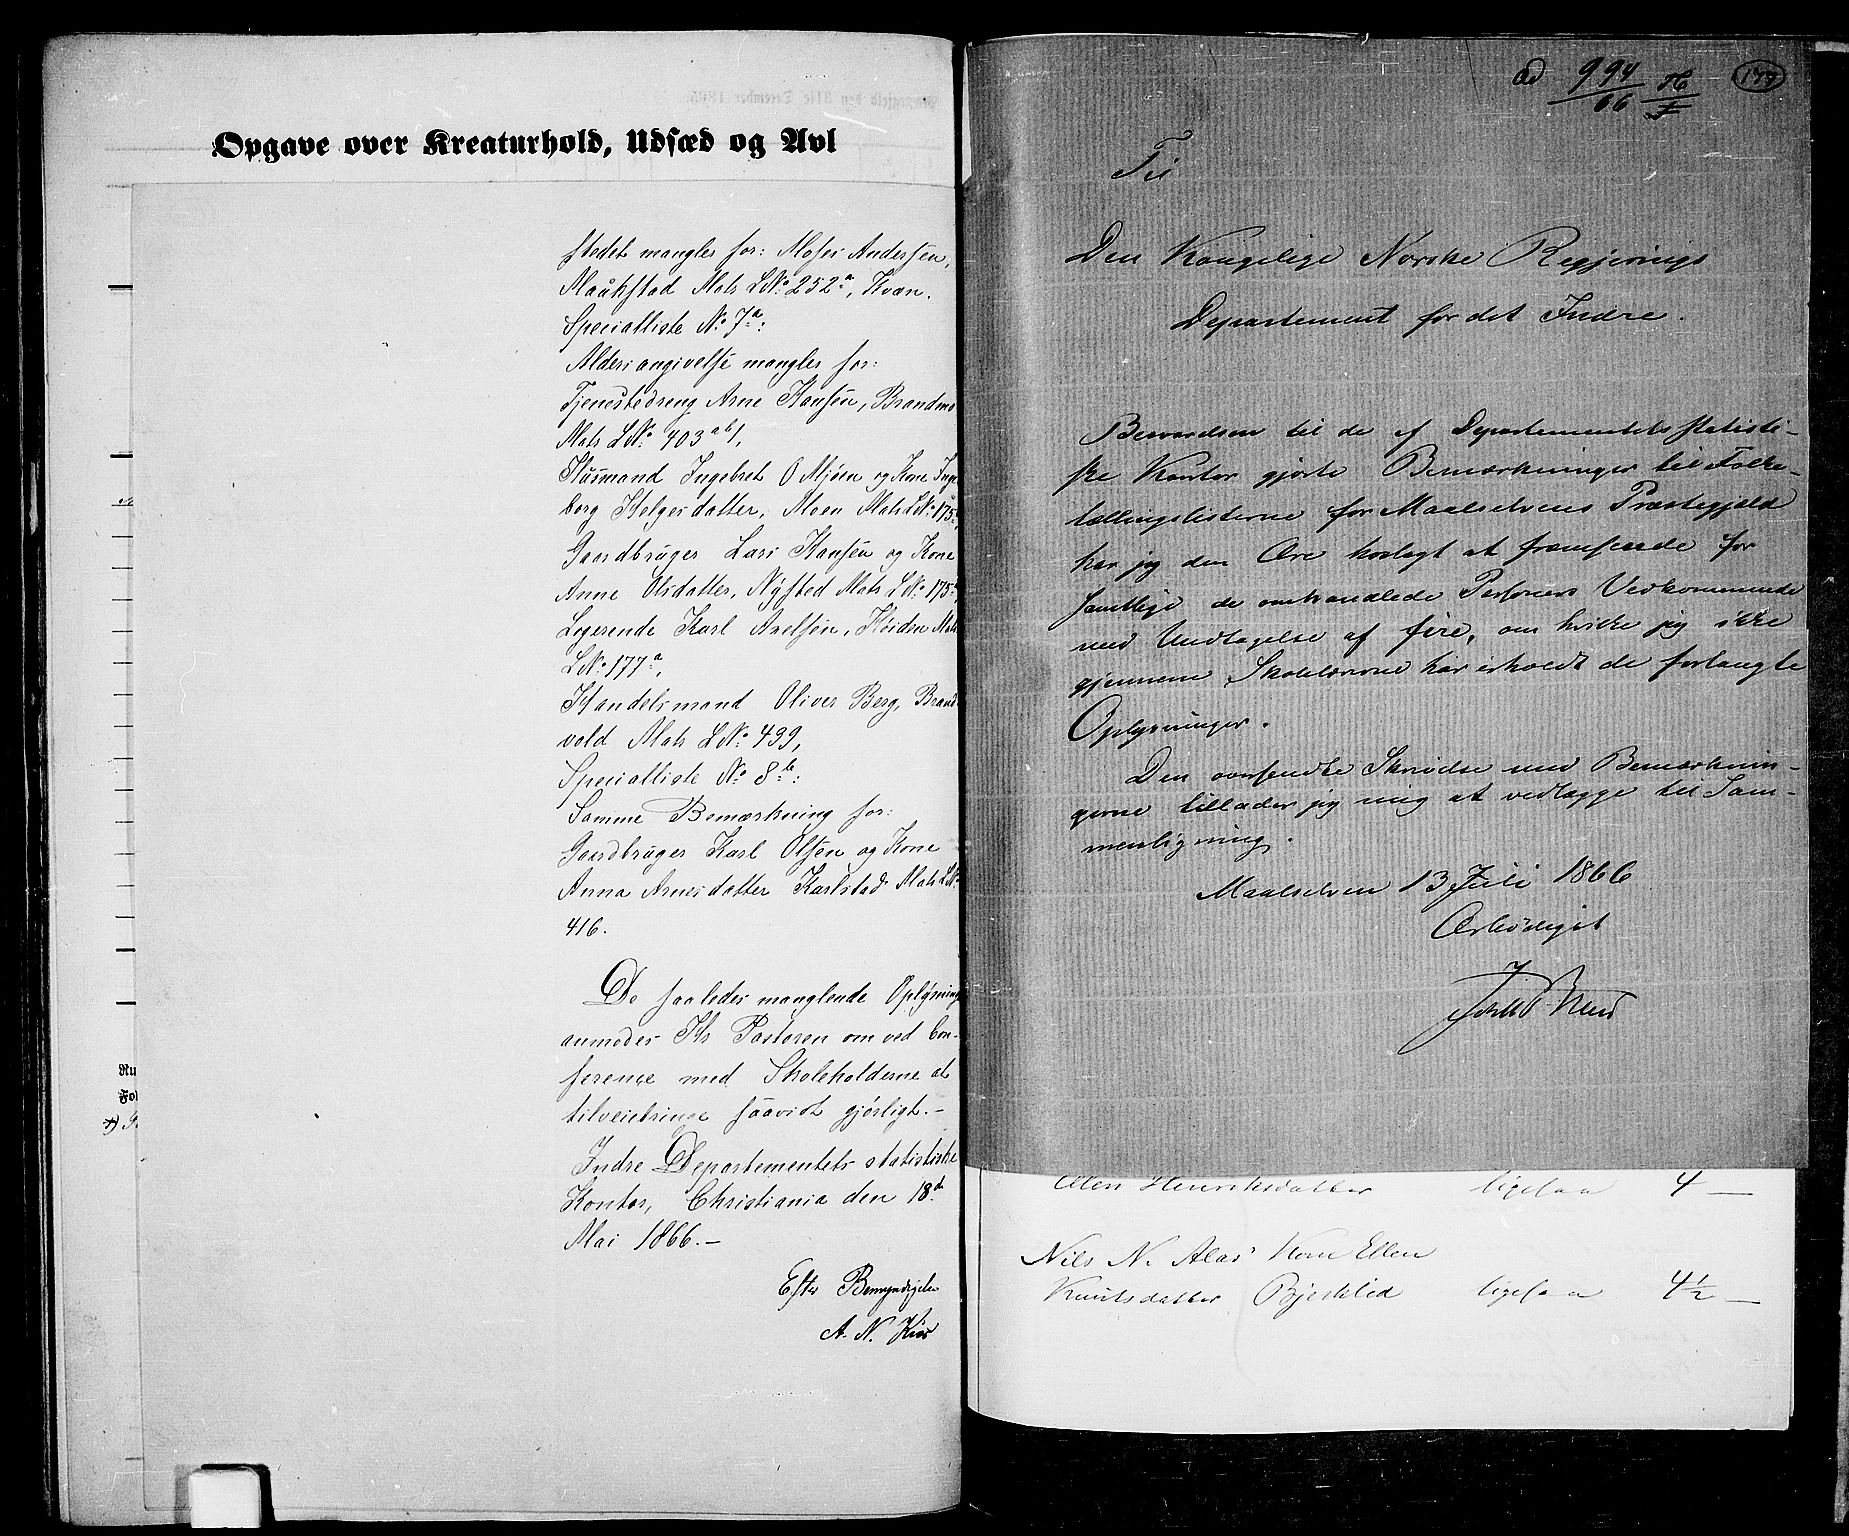 Opgave over Kreaturhold, Udsæd og Avl
stedet mangler for: Moses Andersen,
Maukstad Matr LNo 252a, Kvæn.
Specialliste No 7a:
Aldersangivelse mangler for:
Tjenestedreng Arne Hansen, Brandmo
Matr LNo 403ab1,
Husmand Ingebret O Mjøen og Kone Inge
borg Helgesdatter, Moen Matr LNo 175
Gaardbruger Lars Hansen og Kone
Anne Olsdatter, Nysted Matr LNo 175a,
Logerende Karl Axelsen, Høiden Matr
LNo 177a,
Handelsmand Oliver Berg, Brand
vold Matr LNo 499,
Specialliste No 8b:
Samme Bemærkning for:
Gaardbruger Karl Olsen og Kone
Anna Arnesdatter Karlstad Matr LNo
416.
De saaledes manglende Oplysning
anmodes Hr Pastoren om ved Con-
ference med Skoleholderne at
tilveiebringe saavidt gjørligt.-
Indre Departementets statistiske
Kontor, Christiania den 18de
Mai 1866.-
Efter Bemyndigelse
A. N. Kiær
ad 994/66
177
Til
Den Kongelige Norske Regjerings
Departement for det Indre.
Besvarelsen til de af Departementets statisti-
ske Kontor gjorte Bemærkninger til Folke-
tællingslisterne for Maalselvens Præstegjeld
har jeg den Ære hoslagt at fremsende for
samtlige de omhandlede Personers Vedkommende
med Undtagelse af fire, om hvilke jeg ikke
gjennem Skolelærerne har erholdt de forlangte
Oplysninger.
Den oversendte Skrivelse med Bemærknin-
gerne tillader jeg mig at vedlægge til Sam-
menligning.
Maalselven 13 Juli 1866
Ærbødigst
Ellen Henriksdatter ligesaa 4 —
Nils N. Aas' Kone Ellen
Knutsdatter Bjerklid ligesaa 4½ —